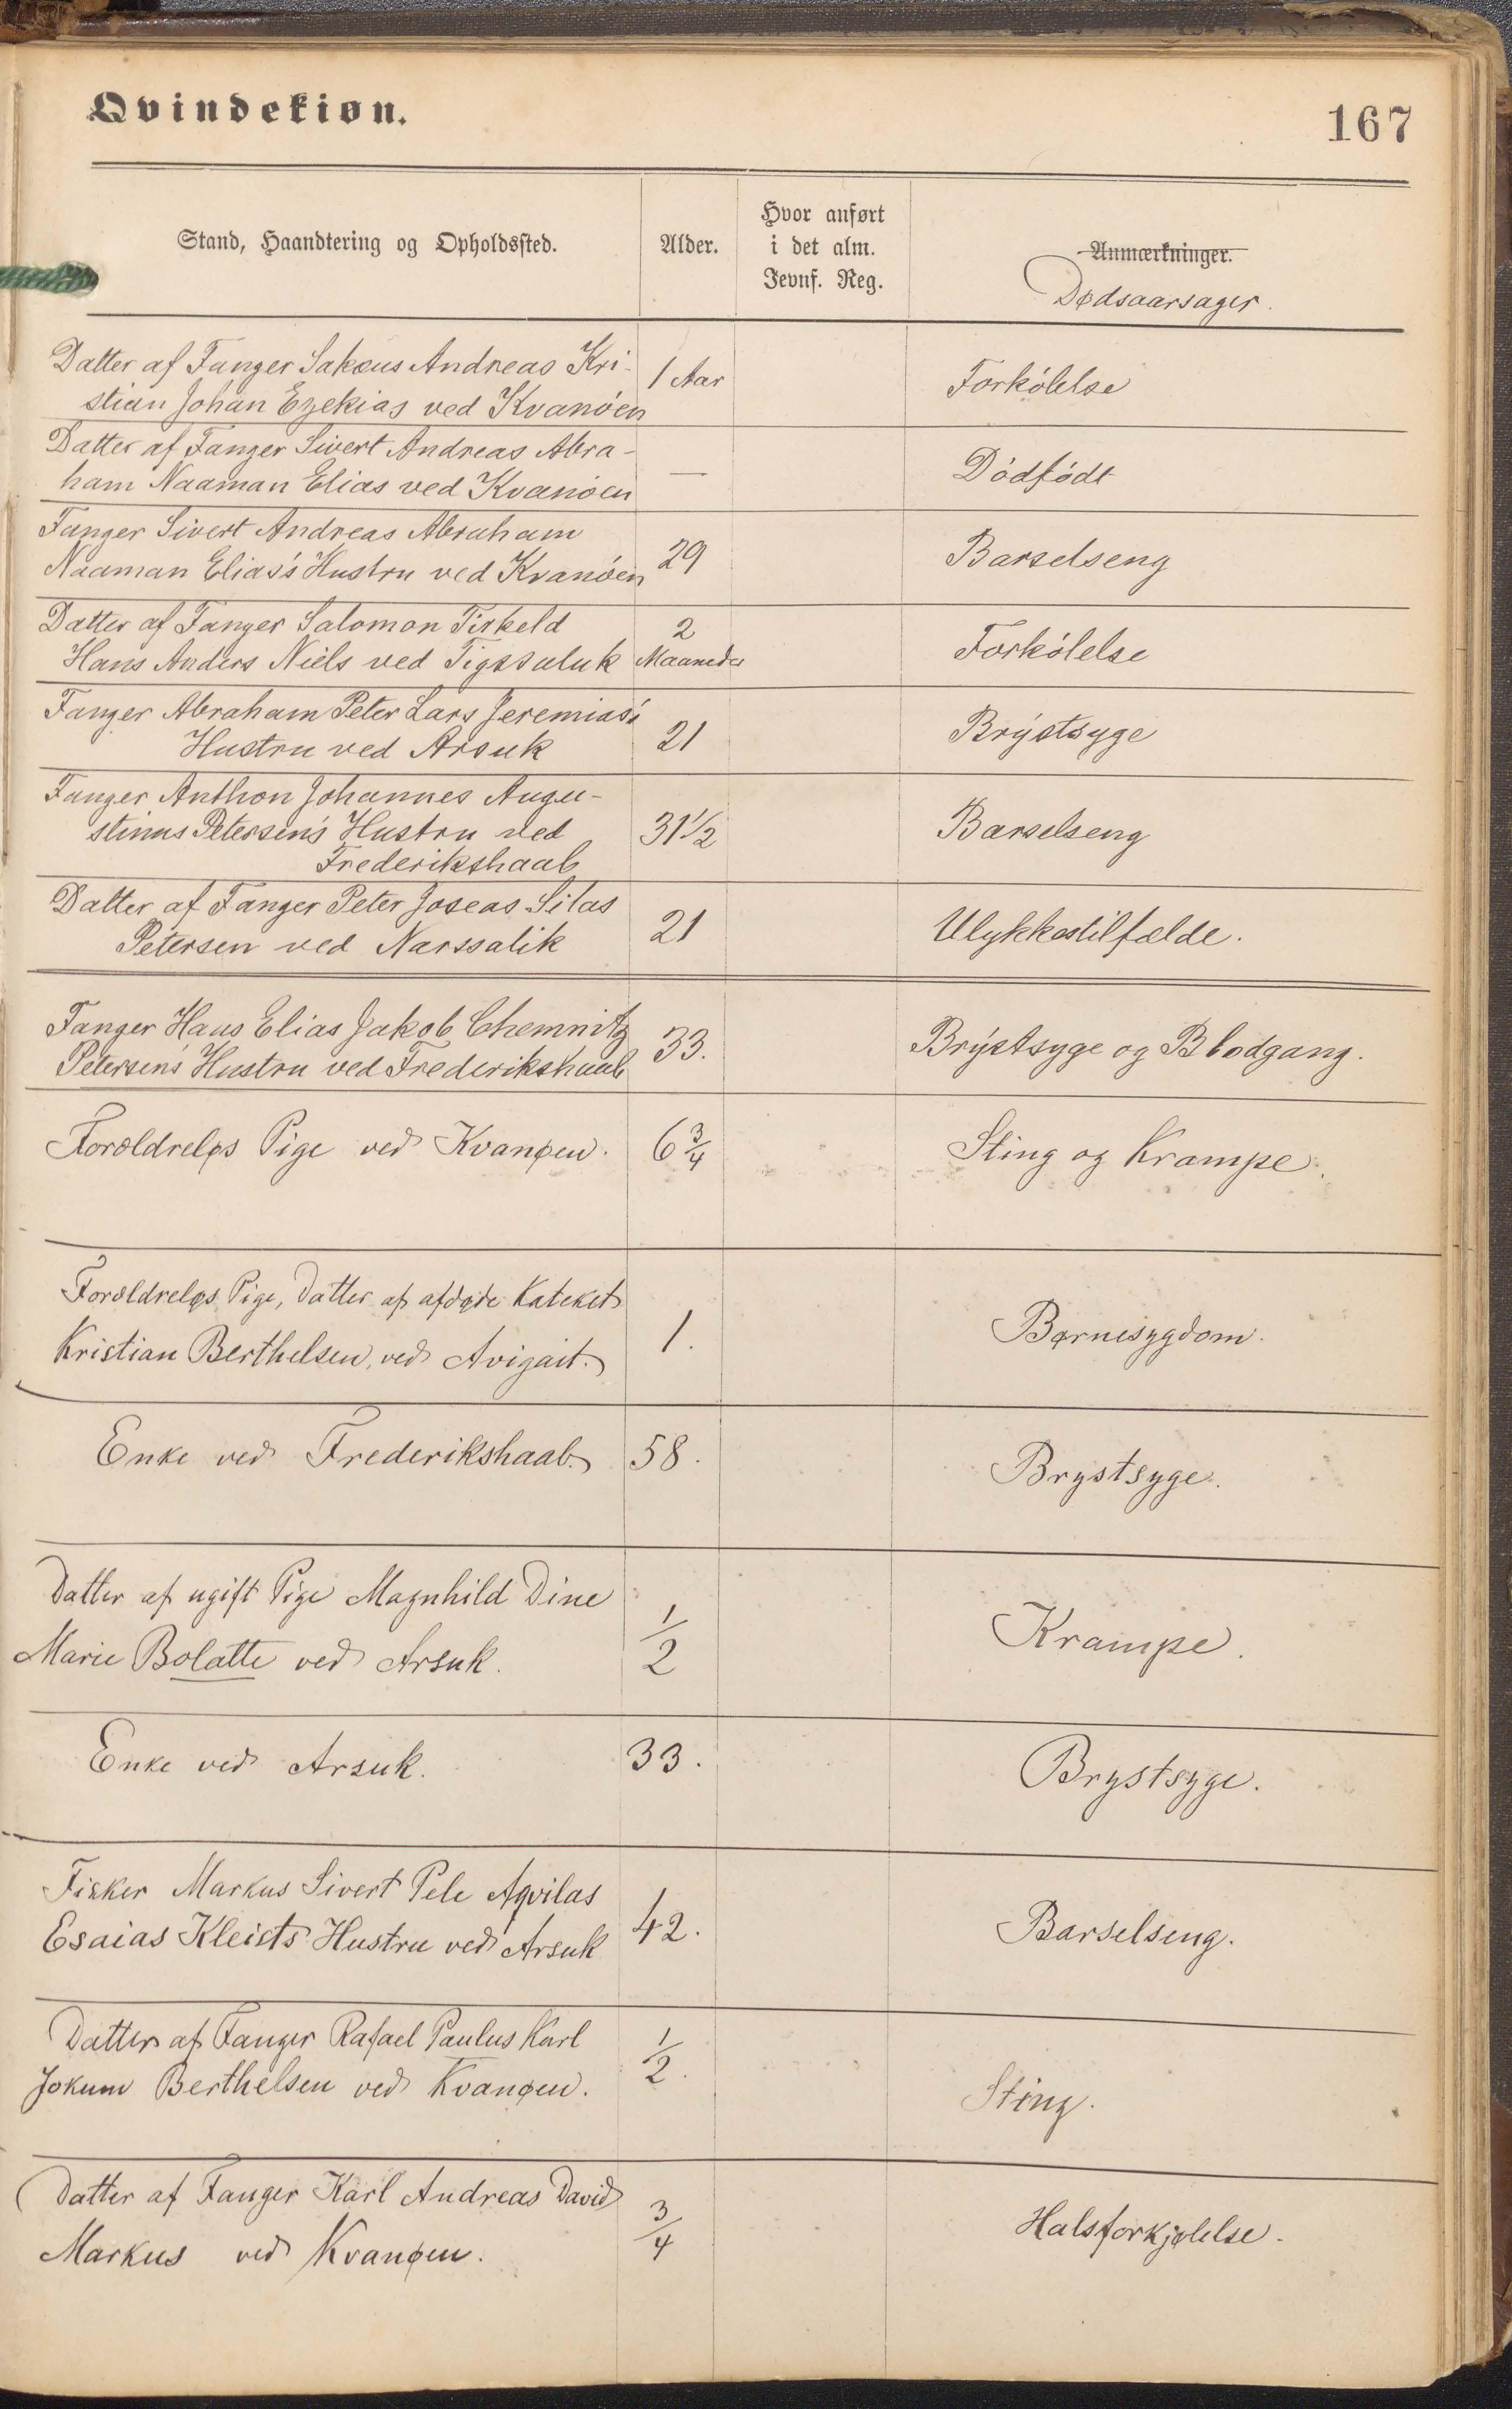 Qvindekiøn.
167
Stand, Haandtering og Opholdssted.
Alder.
Hvor anført
i det alm.
Jevnf. Reg.
Anmærkninger.
Dødsaarsager.
Datter af Fanger Sakæus Andreas Kri-
stian Johan Ezekias ved Kvanöen
1 Aar
Forkölelse
Datter af Fanger Sivert Andreas Abra-
ham Naaman Elias ved Kvanöen
—
Dödfödt
Fanger Sivert Andreas Abraham
Naaman Elias's Hustru ved Kvanöen
29
Barselseng
Datter af Fanger Salomon Tirkeld
Hans Anders Niels ved Tigssaluk
2
Maaneder
Forkölelse
Fanger Abraham Peter Lars Jeremias's
Hustru ved Arsuk
21
Brÿstsyge
Fanger Anthon Johannes Augu-
stinus Petersen's Hustru ved
Frederikshaab
31½
Barselseng
Datter af Fanger Peter Joseas Silas
Petersen ved Narssalik
21
Ulykkestilfælde.
Fanger Hans Elias Jakob Chemnitz
Petersen's Hustru ved Frederikshaab
33.
Brÿstsyge og Blodgang.
Forældreløs Pige ved Kvanøen.
6 3/4
Sting og Krampe.
Forældreløs Pige, Datter af afdøde Kateket
Kristian Berthelsen, ved Avigait.
1.
Børnesygdom.
Enke ved Frederikshaab.
58.
Brystsyge.
Datter af ugift Pige Magnhild Dine
Marie Bolatte ved Arsuk.
1/2
Krampe.
Enke ved Arsuk.
33.
Brystsyge.
Fisker Markus Sivert Pele Aqvilas
Esaias Kleists Hustru ved Arsuk
42.
Barselseng.
Datter af Fanger Rafael Paulus Karl
Jokum Berthelsen ved Kvanøen.
1/2.
Sting.
Datter af Fanger Karl Andreas David
Markus ved Kvanøen.
3/4
Halsforkjølelse.